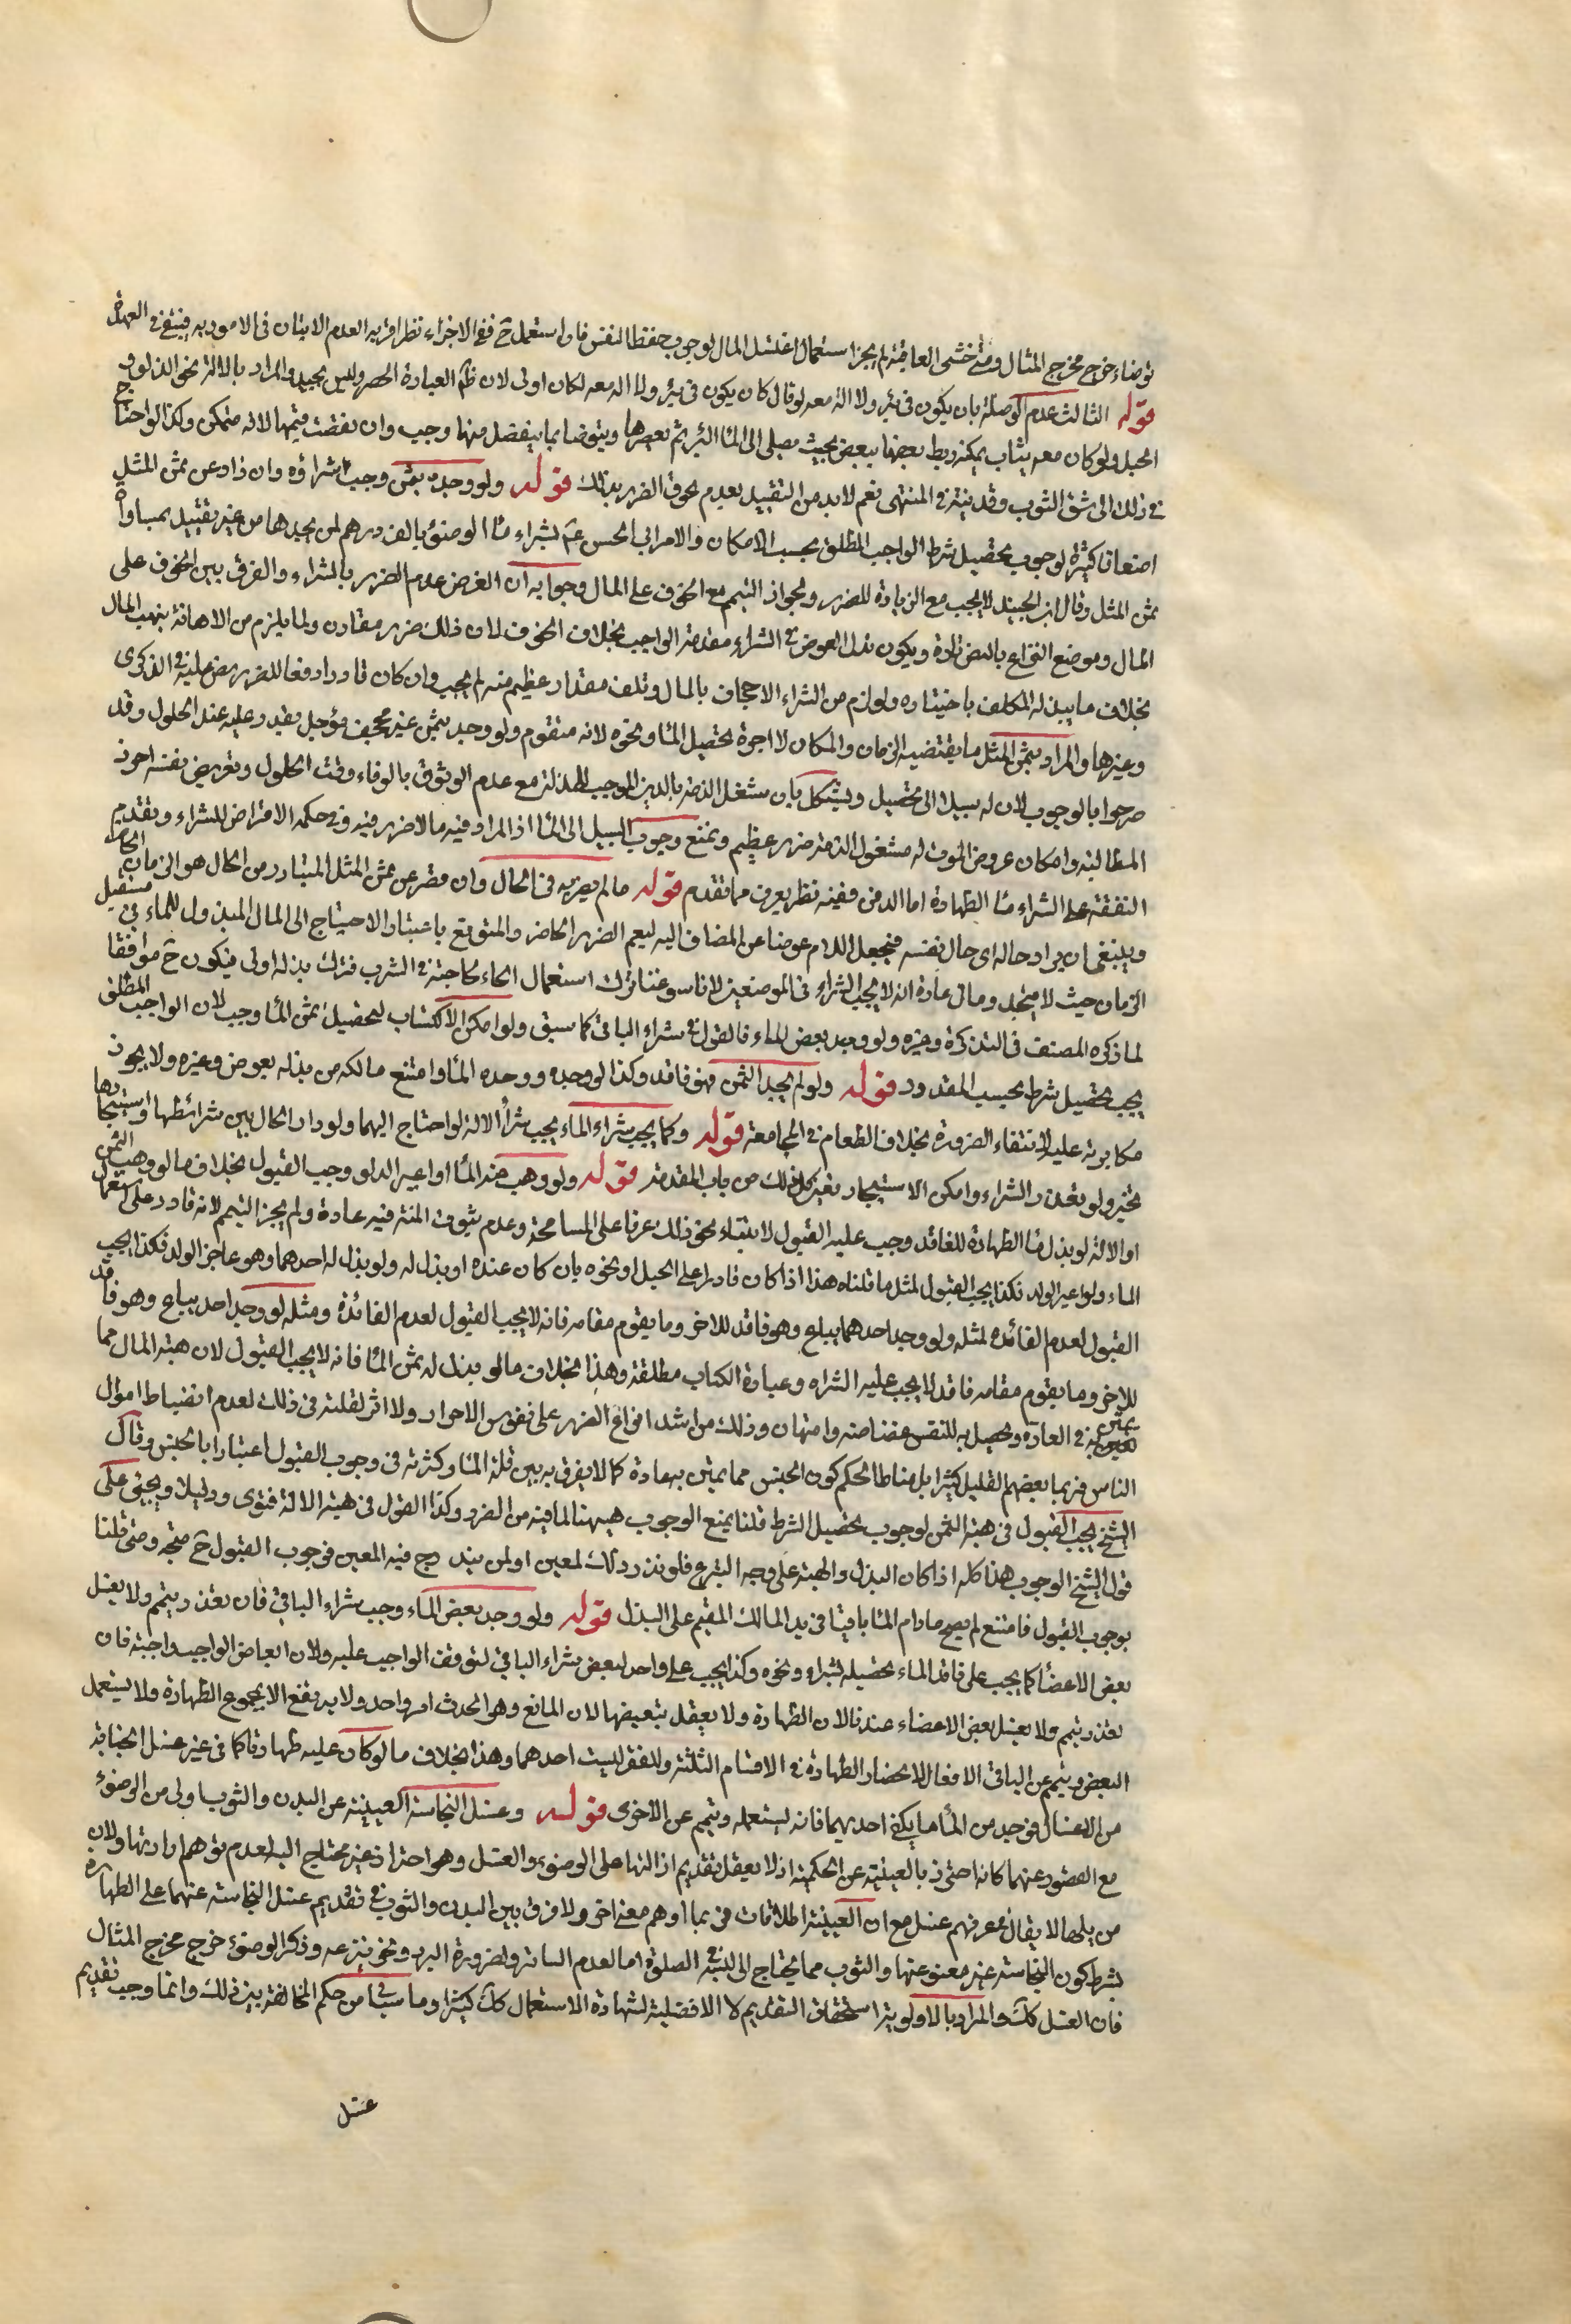 توضاء خرج مخرج المثال ومتى خشى العاقبة لم يجز استعمال اغتسل المال لوجوب حفظ النفس فان استعمل ح ففي الاجزاء نظر اقربه العدم لعدم الاتيان في المامور به فيبقى في العهدة
قوله الثالث عدم الوصلة بان يكون في بئر ولا الة معه لو قال كان يكون في بئر ولا الة معه لكان اولى لان ظم العبارة الحصر وليس بجيد والمراد بالالة نحو الدلو و
الحبل ولو كان معه ثياب يمكنه ربط بعضها ببعض بحيث يصل الى الماء البئر ثم يعصرها ويتوضا بما ينفصل منها وجب وان نقصت قيمتها لانه متمكن وكذا لو احتاج
في ذلك الى شق الثوب وقد بينه في المنتهى نعم لا بد من التقييد بعدم لحوق الضرر بذلك قوله ولو وجده بثمن وجب شراؤه وان زاد عن ثمن المثل
اضعافا كثيرة لوجوب تحصيل شرط الواجب المطلق بحسب الامكان والامر ابي الحسن عم بشراء ماء الوضوء بالف درهم لمن يجدها من غير تقييد بمساواة
ثمن المثل وقال ابن الجنيد لا يجب مع الزيادة للضرر ولجواز التيمم مع الخوف على المال وجوابه ان الغرض عدم الضرر بالشراء والفرق بين الخوف على
المال وموضع النزاع بالنص تارة وبكون بذل العوض في الشراء مقدمة الواجب بخلاف الخوف لان ذلك ضرر مقارن ولما يلزم من الاهانة بنهب المال
بخلاف ما يبذله المكلف باختياره ولو لزم من الشراء الاجحاف بالمال وتلف مقدار عظيم منه لم يجب وان كان قادرا دفعا للضرر نص عليه في الذكرى
وغيرها والمراد بثمن المثل ما يقتضيه الزمان والمكان لا اجرة تحصيل الماء ونحوه لانه متقوم ولو وجد بثمن غير مجحف مؤجل يقدر عليه عند الحلول وقد
صرحوا بالوجوب لان له سبيلا الى تحصيل ويشكل بان شغل الذمة بالدين الموجب للمذلة مع عدم الوثوق بالوفاء وقت الحلول وتعريض نفسه لضرر
المطالبة وامكان عروض الموت له مشغول الذمة ضرر عظيم ويمنع وجوب السبيل الى الماء اذ المراد فيه ما لا ضرر فيه وفي حكمه الاقتراض للشراء وتقديم
النفقة على الشراء ماء الطهارة اما الدين ففيه نظر يعرف مما تقدم قوله ما لم يضر به في الحال وان قصر عن ثمن المثل المتبادر من الحال هو الزمان الحاضر
وينبغي ان يراد حاله اي حال نفسه فيجعل اللام عوضا عن المضاف اليه ليعم الضرر الحاضر والمتوقع باعتبار الاحتياج الى المال المبذول للماء في مستقبل
الزمان حيث لا متجدد ومال عادة انه لا يجب الشراء في الموضعين لانا سوغنا ترك استعمال الماء لحاجته في الشرب فترك بذله اولى فيكون ح موافقا
لما ذكره المصنف في التذكرة وغيره ولو وجد بعض الماء فالقول في شراء الباقي كما سبق ولو امكن الاكتساب لتحصيل ثمن الماء وجب لان الواجب المطلق
يجب تحصيل شرطه بحسب المقدور قوله ولو لم يجد الثمن فهو فاقد وكذا لو وجده ووجده الماء وامتنع مالكه من بذله بعوض وغيره ولا يجوز
مكابرته عليه لانتفاء الضرورة بخلاف الطعام في المجاعة قوله وكما يجب شراء الماء يجب شراء الالة لو احتاج اليها ولو دار الحال بين شرائطها واستيجارها
تخير ولو تعذر الشراء وامكن الاستيجار تعين كل ذلك من باب المقدمة قوله ولو وهب منه الماء او اعير الدلو وجب القبول بخلاف ما لو وهب الثمن
او الالة لو بذل ماء الطهارة للفاقد وجب عليه القبول لابتناء نحو ذلك عرفا على المسامحة وعدم ثبوت المنة فيه عادة ولم يجز التيمم لانه قادر على استعمال
الماء ولو اعير الدلو فكذا يجب القبول لمثل ما قلناه هذا اذا كان قادرا على الحبل او نحوه بان كان عنده او بذل له ولو بذل له احدهما وهو عاجز الولد فكذا يجب
القبول لعدم الفائدة لمثله ولو وجد احدهما يباع وهو فاقد للاخر وما يقوم مقامه فانه لا يجب القبول لعدم الفائدة ومثله لو وجد احد يباع وهو فاقد
للاخر وما يقوم مقامه فاقد لا يجب عليه الشراء وعبارة الكتاب مطلقة وهذا بخلاف ما لو بذل له ثمن الماء فانه لا يجب القبول لان هبة المال مما
يمتن به في العادة ويحصل به للنفس غضاضة وامتهان وذلك من اشد انواع الضرر على نفوس الاحرار ولا اثر لقلته في ذلك لعدم انضباط اموال
الناس فربما بعضهم القليل كثيرا بل مناط الحكم كون الجنس مما يمتن به عادة كما لا يفرق به بين قلة الماء وكثرته في وجوب القبول اعتبارا بالجنس وقال
الشيخ يجب القبول في هبة الثمن لوجوب تحصيل الشرط قلنا يمنع الوجوب هيهنا لما فيه من الضرر وكذا القول في هبة الالة فتوى ودليلا ويجئ على
قول الشيخ الوجوب هذا كله اذا كان البذل والهبة على وجه التبرع فلو نذر ذلك لمعين او لمن يندرج فيه المعين فوجوب القبول ح متجه ومتى قلنا
بوجوب القبول فامتنع لم يصح ما دام الماء باقيا في يد المالك المقيم على البذل قوله ولو وجد بعض الماء وجب شراء الباقي فان تعذر يتيمم ولا يغسل
بعض الاعضاء كما يجب على فاقد الماء تحصيله بشراء ونحوه وكذا يجب على واحد لبعض شراء الباقي لتوقف الواجب عليه ولان ابعاض الواجب واجبة فان
تعذر تيمم ولا يغسل بعض الاعضاء عندنا لان الطهارة ولا يعقل تبعيضها لان المانع وهو الحدث امر واحد ولا يرتفع الا بمجموع الطهارة ولا يستعمل
البعض ويتيمم عن الباقي الا فعالا لانحصار الطهارة في الاقسام الثلثة ولتفقر ليست احدهما وهذا بخلاف ما لو كان عليه طهارتان كما في غير غسل الجنابة
من الاغسال فوجد من الماء ما يكفي احديهما فانه يستعمله ويتيمم عن الاخرى قوله وغسل النجاسة العينية عن البدن والثوب اولى من الوضوء
مع القصور عنهما كانه احترز بالعينية عن الحكمية اذ لا يعقل تقديم ازالتها على الوضوء والغسل وهو احتراز غير محتاج اليه لعدم توهم ارادتها ولان
من يلها لا يقال في عرفهم غسل مع ان العينية اطلاقات فربما اوهم معنى اخر ولا فرق بين البدن والثوب في تقديم غسل النجاسة عنهما على الطهارة
بشرط كون النجاسة غير معفو عنها والثوب مما يحتاج الى لبسه في الصلوة اما لعدم الساتر ولضرورة البرد ونحو بنزعه وذكر الوضوء خرج مخرج المثال
فان الغسل كك والمراد بالاولوية استحقاق التقديم لا الافضلية لشهادة الاستعمال كك كثيرا وما سيأتي من حكم المخالفة بين ذلك وانما وجب تقديم
غسل